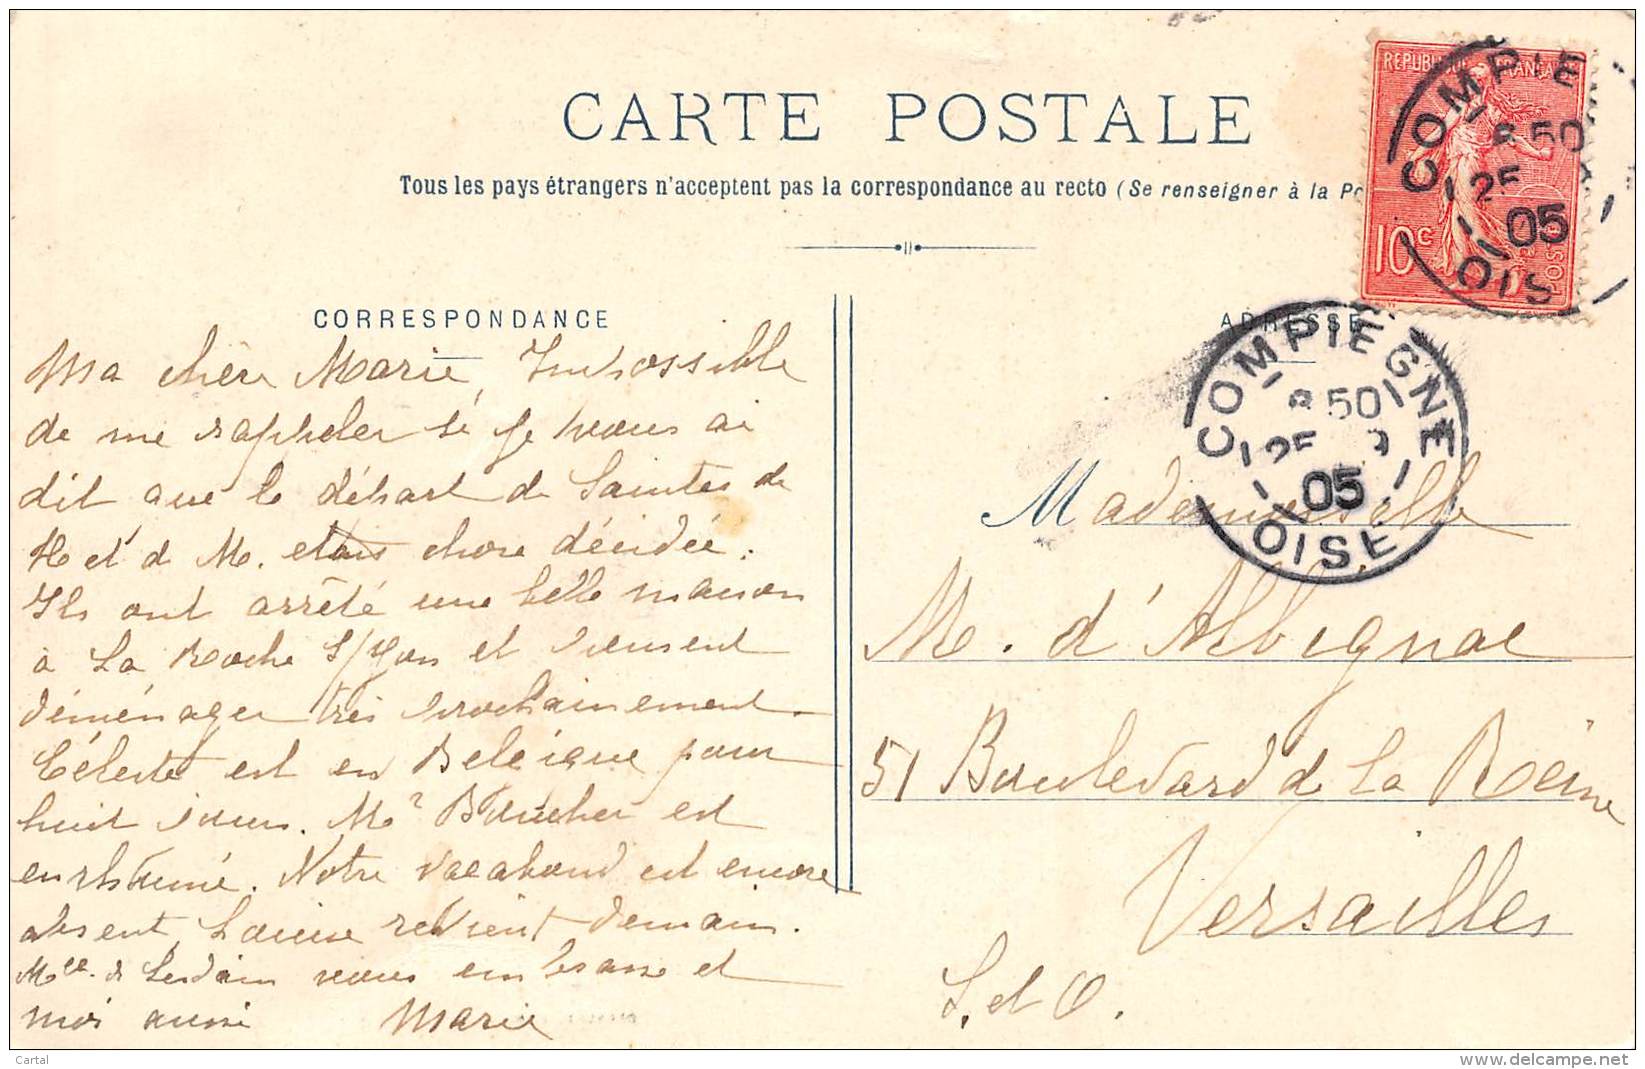 CARTE POSTALE
Tous les pays étrangers n'acceptent pas la correspondance au recto (Se renseigner à la Po
REPUBLIQUE FRANÇAISE
10c
POSTES
COMPIEGNE
50
25
05
OISE
CORRESPONDANCE
ADRESSE
COMPIEGNE
50
25
05
OISE
Ma chère Marie, Impossible
de me rappeler si je vous ai
dit que le départ de Saintes de
H et d M. chose décidée.
Ils ont arrêté une belle maison
à La Roche S/Yon et viennent
déménager très prochainement.
Céleste est en Belgique pour
huit jours. Mr Boucher est
enrhumé. Notre vagabond est encore
absent, revient demain.
de vous embrasse et
moi aussi Marie
Mademoiselle
M. d'Albignac
51 Boulevard de La Reine
Versailles
S. et O.
Cartal
www.delcampe.net